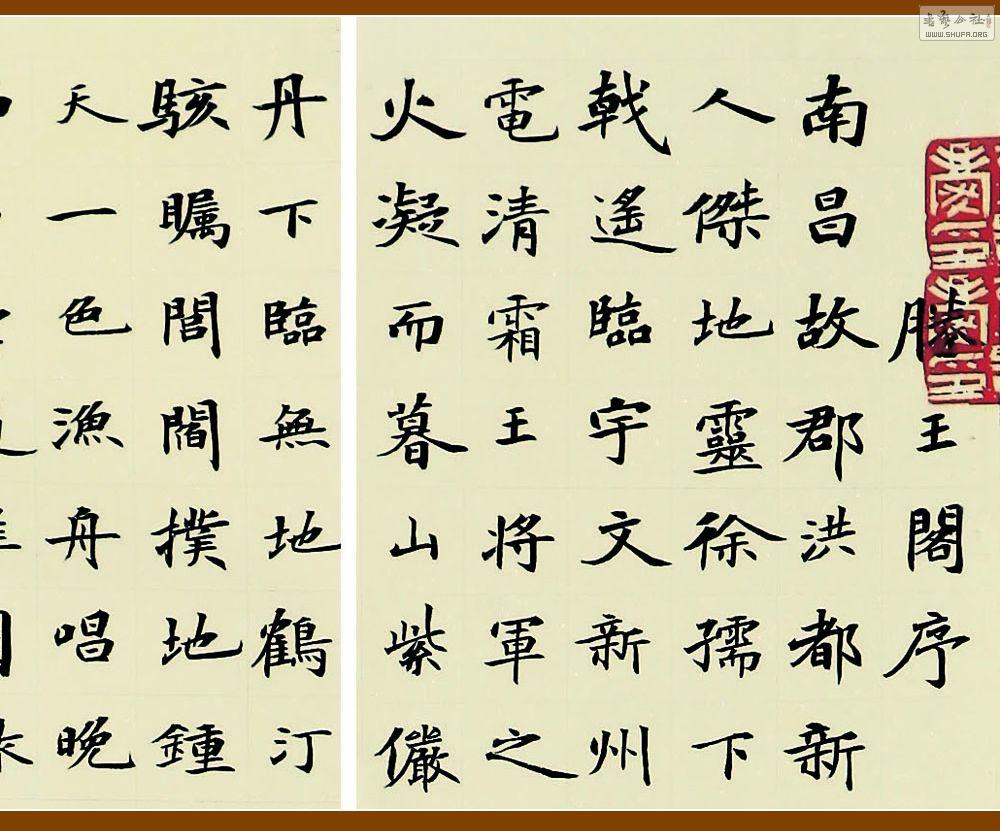 滕王閣序
南昌故郡洪都新
人傑地靈徐孺下
戟遙臨宇文新州
電清霜王將軍之
火凝而暮山紫儼
丹下臨無地鶴汀
駭矚閭閻撲地鍾
天一色漁舟唱晚
書藝公社
WWW.SHUFA.ORG